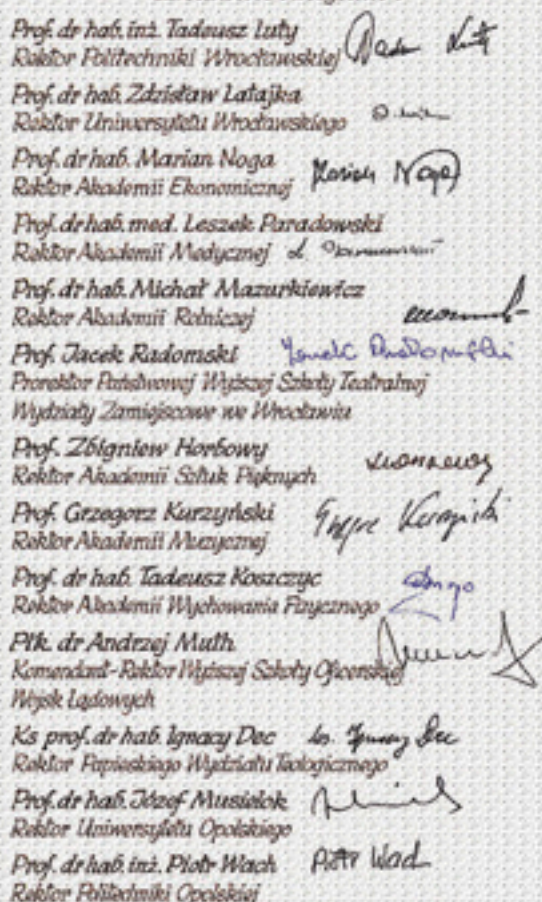 Prof. dr hab. inż. Tadeusz Luty
Rektor Politechniki Wrocławskiej
Prof. dr hab. Zdzisław Latajka
Rektor Uniwersytetu Wrocławskiego
Prof. dr hab. Marian Noga
Rektor Akademii Ekonomicznej Marian Noga
Prof. dr hab. med. Leszek Paradowski
Rektor Akademii Medycznej
Prof. dr hab. Michał Mazurkiewicz
Rektor Akademii Rolniczej
Prof. Jacek Radomski Jacek Radomski
Prorektor Państwowej Wyższej Szkoły Teatralnej
Wydziały Zamiejscowe we Wrocławiu
Prof. Zbigniew Horbowy
Rektor Akademii Sztuk Pięknych
Prof. Grzegorz Kurzyński
Rektor Akademii Muzycznej
Prof. dr hab. Tadeusz Koszczyc
Rektor Akademii Wychowania Fizycznego
Płk. dr Andrzej Muth
Komendant-Rektor Wyższej Szkoły Oficerskiej
Wojsk Lądowych
Ks prof. dr hab. Ignacy Dec ks. Ignacy Dec
Rektor Papieskiego Wydziału Teologicznego
Prof. dr hab. Józef Musielok
Rektor Uniwersytetu Opolskiego
Prof. dr hab. inż. Piotr Wach Piotr Wach
Rektor Politechniki Opolskiej